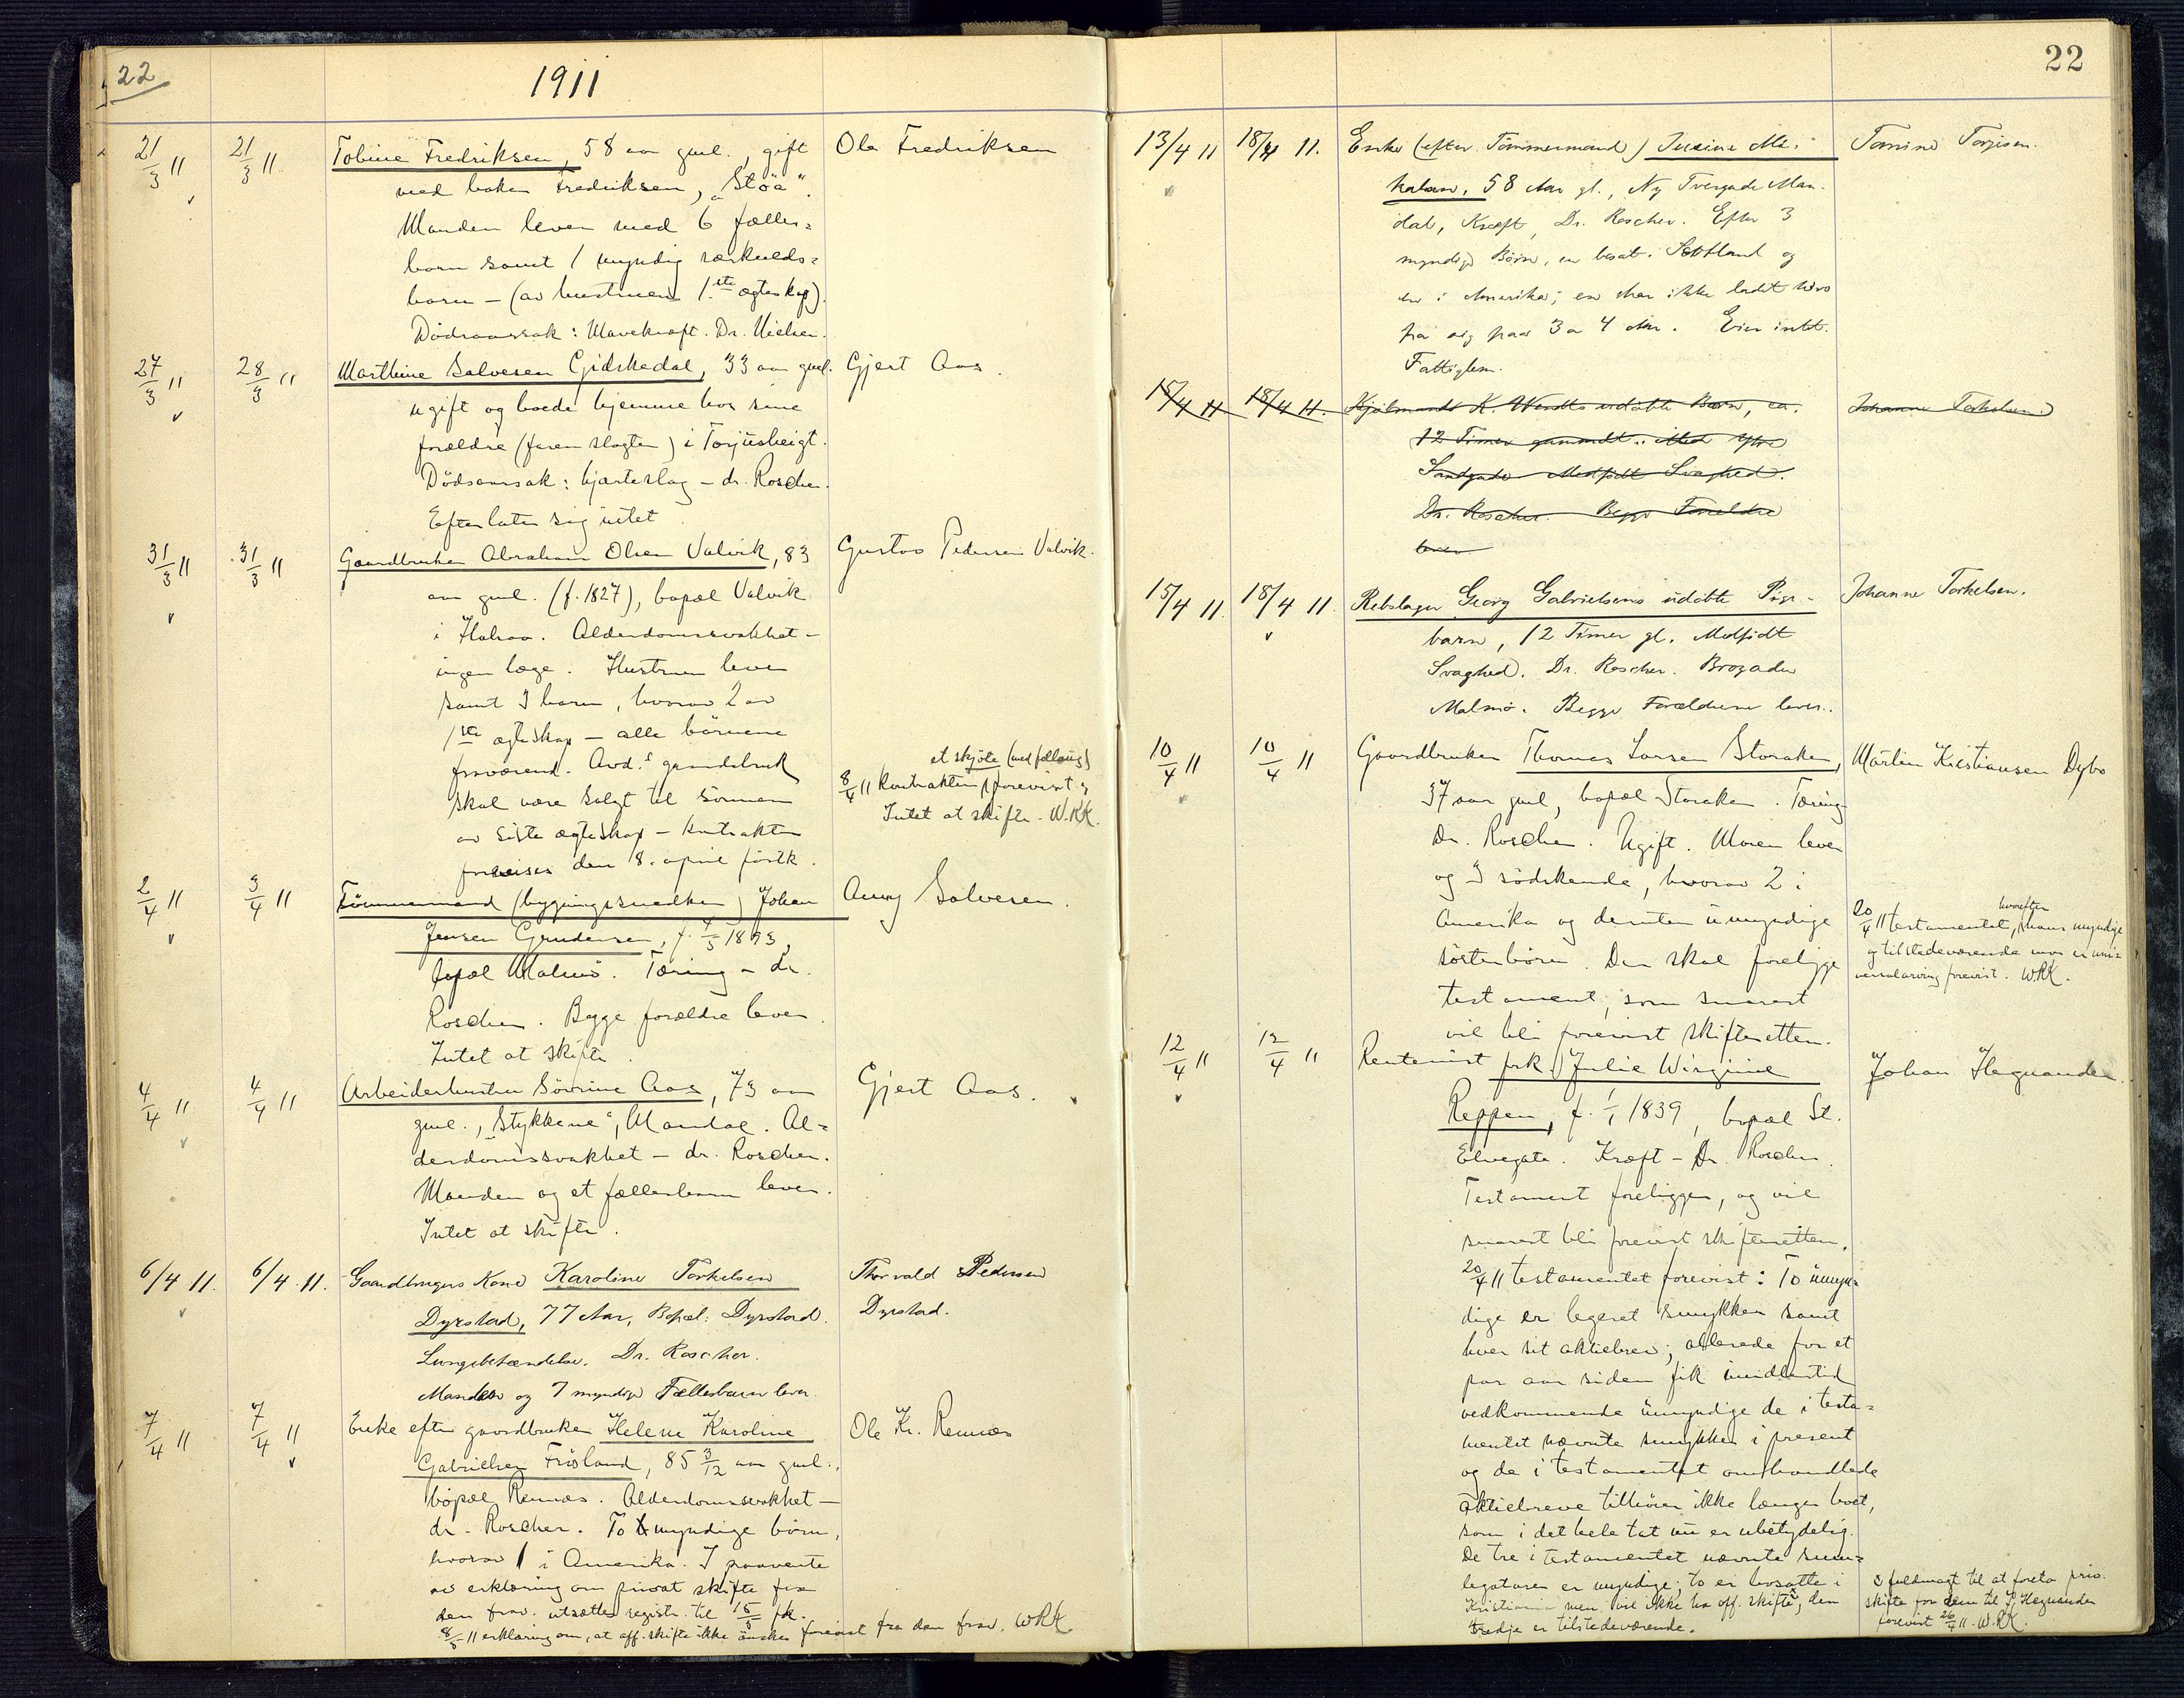 22
1911
21/3 11 21/3 11 Tobine Fredriksen, 58 aar gml., gift Ole Fredriksen
med baker Fredriksen, "Stöa".
Manden lever med 6 fælles-
barn samt 1 myndig særkulds-
barn - (av hustruens 1.ste ægteskap).
Dödsaarsak: Mavekræft. Dr. Nielsen.
27/3 11 28/3 11 Marthine Salvesen Gidskedal, 33 aar gml. Gjert Aas.
ugift og boede hjemme hos sine
forældre (faren slagter) i Torjusheigt.
Dödsaarsak: hjærteslag - dr. Roscher.
Efterlater sig intet.
31/3 11 31/3 11 Gaardbruker Abraham Olsen Valvik, 83 Gustav Pedersen Valvik.
aar gml. (f. 1827), bopæl Valvik
i Halsaa. Alderdomssvakhet -
ingen læge. Hustruen lever
samt 3 barn, hvorav 2 av
1ste ægteskap - alle börnene
fraværend. Avd.s gaardsbruk
skal være solgt til sönnen
av siste ægteskap - kontrakten
forevises den 8. april förstk.
et skjöte (med fölling)
8/4 11 Kontrakten forevist;
Intet at skifte - WRK.
2/4 11 3/4 11 Tömmermand (bygningssnedker) Johan Amy Salvesen.
Jensen Gundersen, f. 1893,
bopæl Malmö. Tæring - dr.
Roscher. Begge forældre lever.
Intet at skifte.
4/4 11 4/4 11 Arbeiderhustru Sörine Aas, 73 aar Gjert Aas.
gml., "Stykkene", Mandal. Al-
derdomssvakhet - dr. Roscher.
Manden og et fællesbarn lever.
Intet at skifte.
6/4 11. 6/4 11. Gaardbrugers Kone Karoline Torkelsen Thorvald Pedersen
Dyrstad, 77 Aar, Bopæl: Dyrstad. Dyrstad.
Lungebetændelse. Dr. Roscher.
Manden og 7 myndige Fællesbarn lever.
7/4 11 7/4 11 Enke efter gaardbruker Helene Karoline Ole Kr. Rennæs
Gabrielsen Frösland, 85 3/12 aar gml.,
bopæl Rennæs. Alderdomssvakhet -
dr. Roscher. To myndige börn,
hvorav 1 i Amerika. I paavente
av erklæring om privat skifte fra
den frav. utsættes registr. til 15/5 fk.
8/5 11 erklæring om, at off. skifte ikke önskes forevist fra den frav. WRK.
22
13/4 11 18/4 11. Enke (efter Tömmermand) Tomine Torjesen.
58 Aar gl., Ny Tvergade Man-
dal, Kræft, Dr. Roscher. Efter 3
myndige Börn, en bosat i Skotland og
en i Amerika; en har ikke ladet höre
fra sig paa 3 a 4 Aar. Eier intet.
Fattiglem.
15/4 11 18/4 11. Hjulmand K. Wendts udöbte Barn, ca. Johanne Torkelsen
12 Timer gammelt. Store
Sandgade Medfödt Svaghed.
Dr. Roscher. Begge Forældre
lever
15/4 11. 18/4 11. Rebslager Georg Gabrielsens udöbte Pige- Johanne Torkelsen.
barn, 12 Timer gl. Medfödt
Svaghed. Dr. Roscher. Brogaden
Malmö. Begge Forældrene lever.
10/4 11 10/4 11 Gaardbruker Thomas Larsen Storaker, Martin Kristiansen Dybo
37 aar gml, bopæl Storaker. Tæring
Dr. Roscher. Ugift. Moren lever
og 3 södskende, hvorav 2 i
Amerika og desuten umyndige
sösterbörn. Der skal foreligge
testament, som snarest
vil bli forevist skifteretten.
20/4 11 testamentet, hvorefter hans myndige
og tilstedeværende mor er uni-
versalarving forevist. WRK.
12/4 11 12/4 11 Rentenist frk. Julie Wirginie Johan Hegnander.
Reppen, f. 1/1 1839, bopæl St.
Elvegate. Kræft - Dr. Roscher.
Testament foreligger, og vil
snarest bli forevist skifteretten.
20/4 11 testamentet forevist: To umyn-
dige er legeret smykker samt
hver sit aktiebrev; allerede for et
par aar siden fik imidlertid
vedkommende umyndige de i testa-
mentet nævnte smykker i present
og de i testamentet omhandlede
aktiebreve tilhörer ikke længer boet,
som i det hele tat nu er ubetydelig.
De tre i testamentet nævnte sum-
legatarer er myndige; to er bosatte i
Kristiania men vil ikke ha off. skifte; den
tredje er tilstedeværende.
3 fuldmagt til at foreta priv.
skifte for dem til J. Hegnander
forevist 26/4 11. WRK.